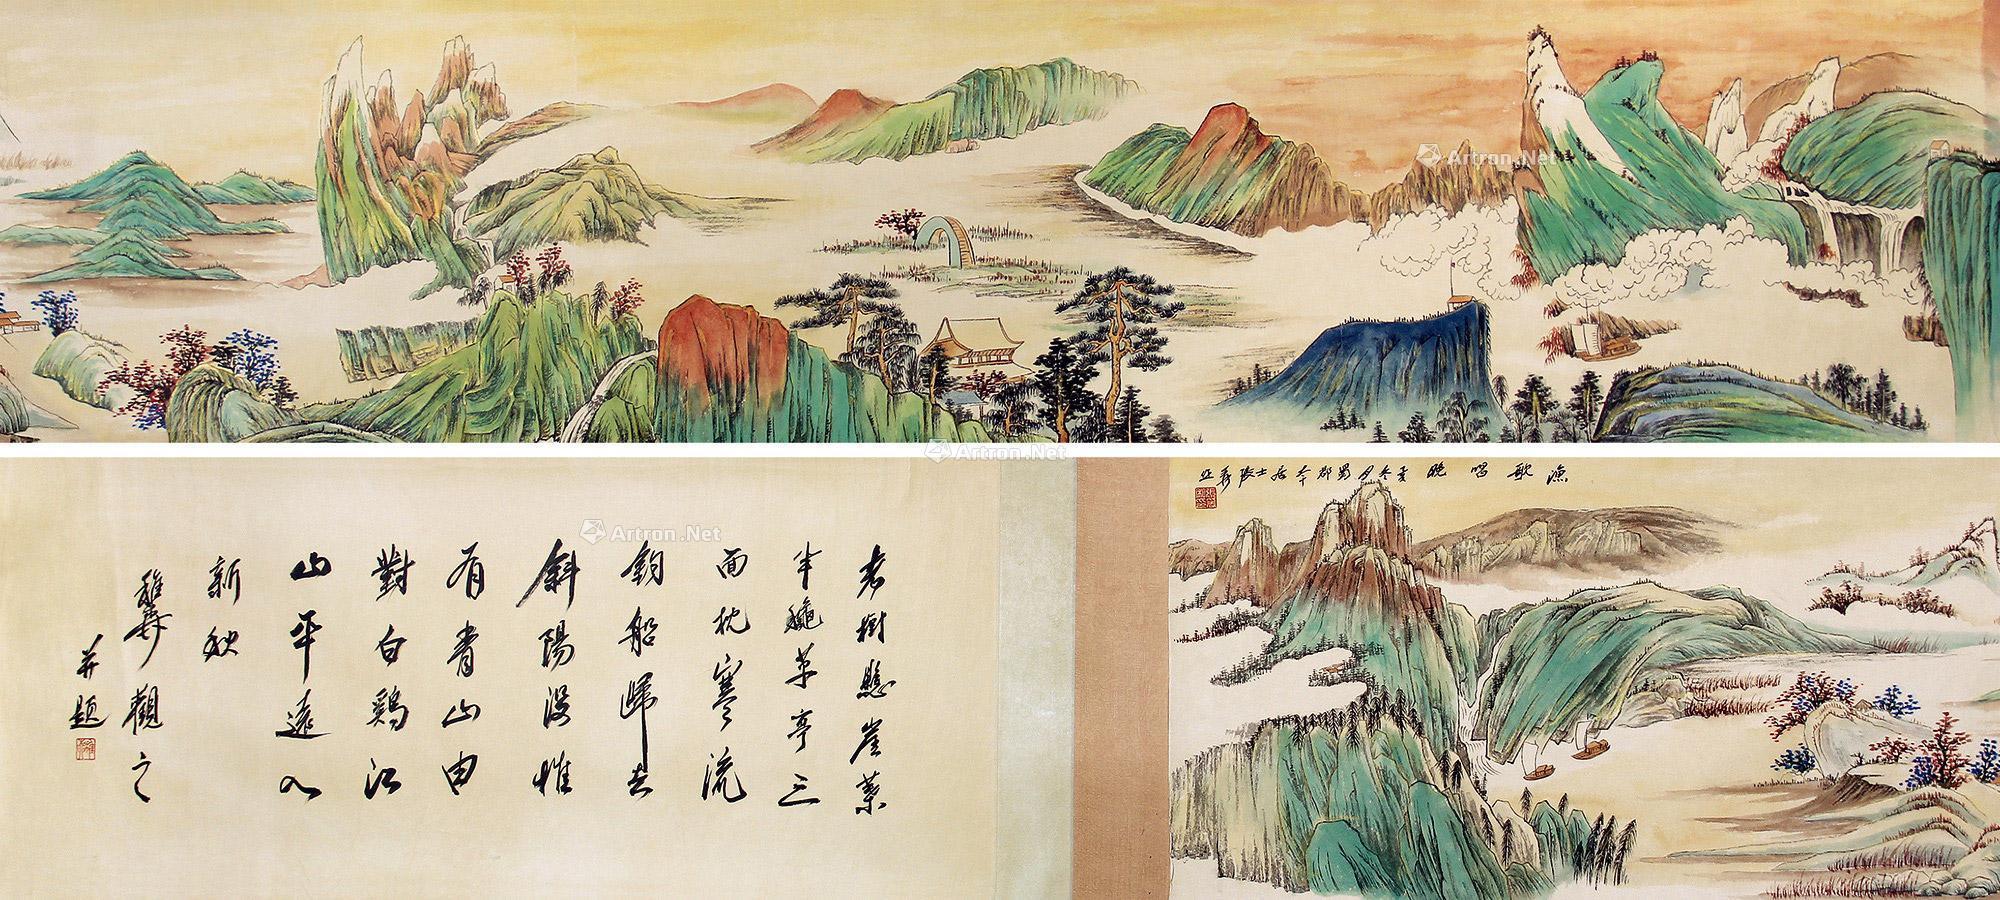 Artron.Net
Artron.Net
Artron.Net
漁歌唱晚 冬月蜀郡大千居士張
Artron.Net
老樹懸崖葉
半龝草亭三
面枕寒流
釣船歸去
斜陽沒惟
有青山由
對白鷗江
山平遠入
新秋
觀之
并題